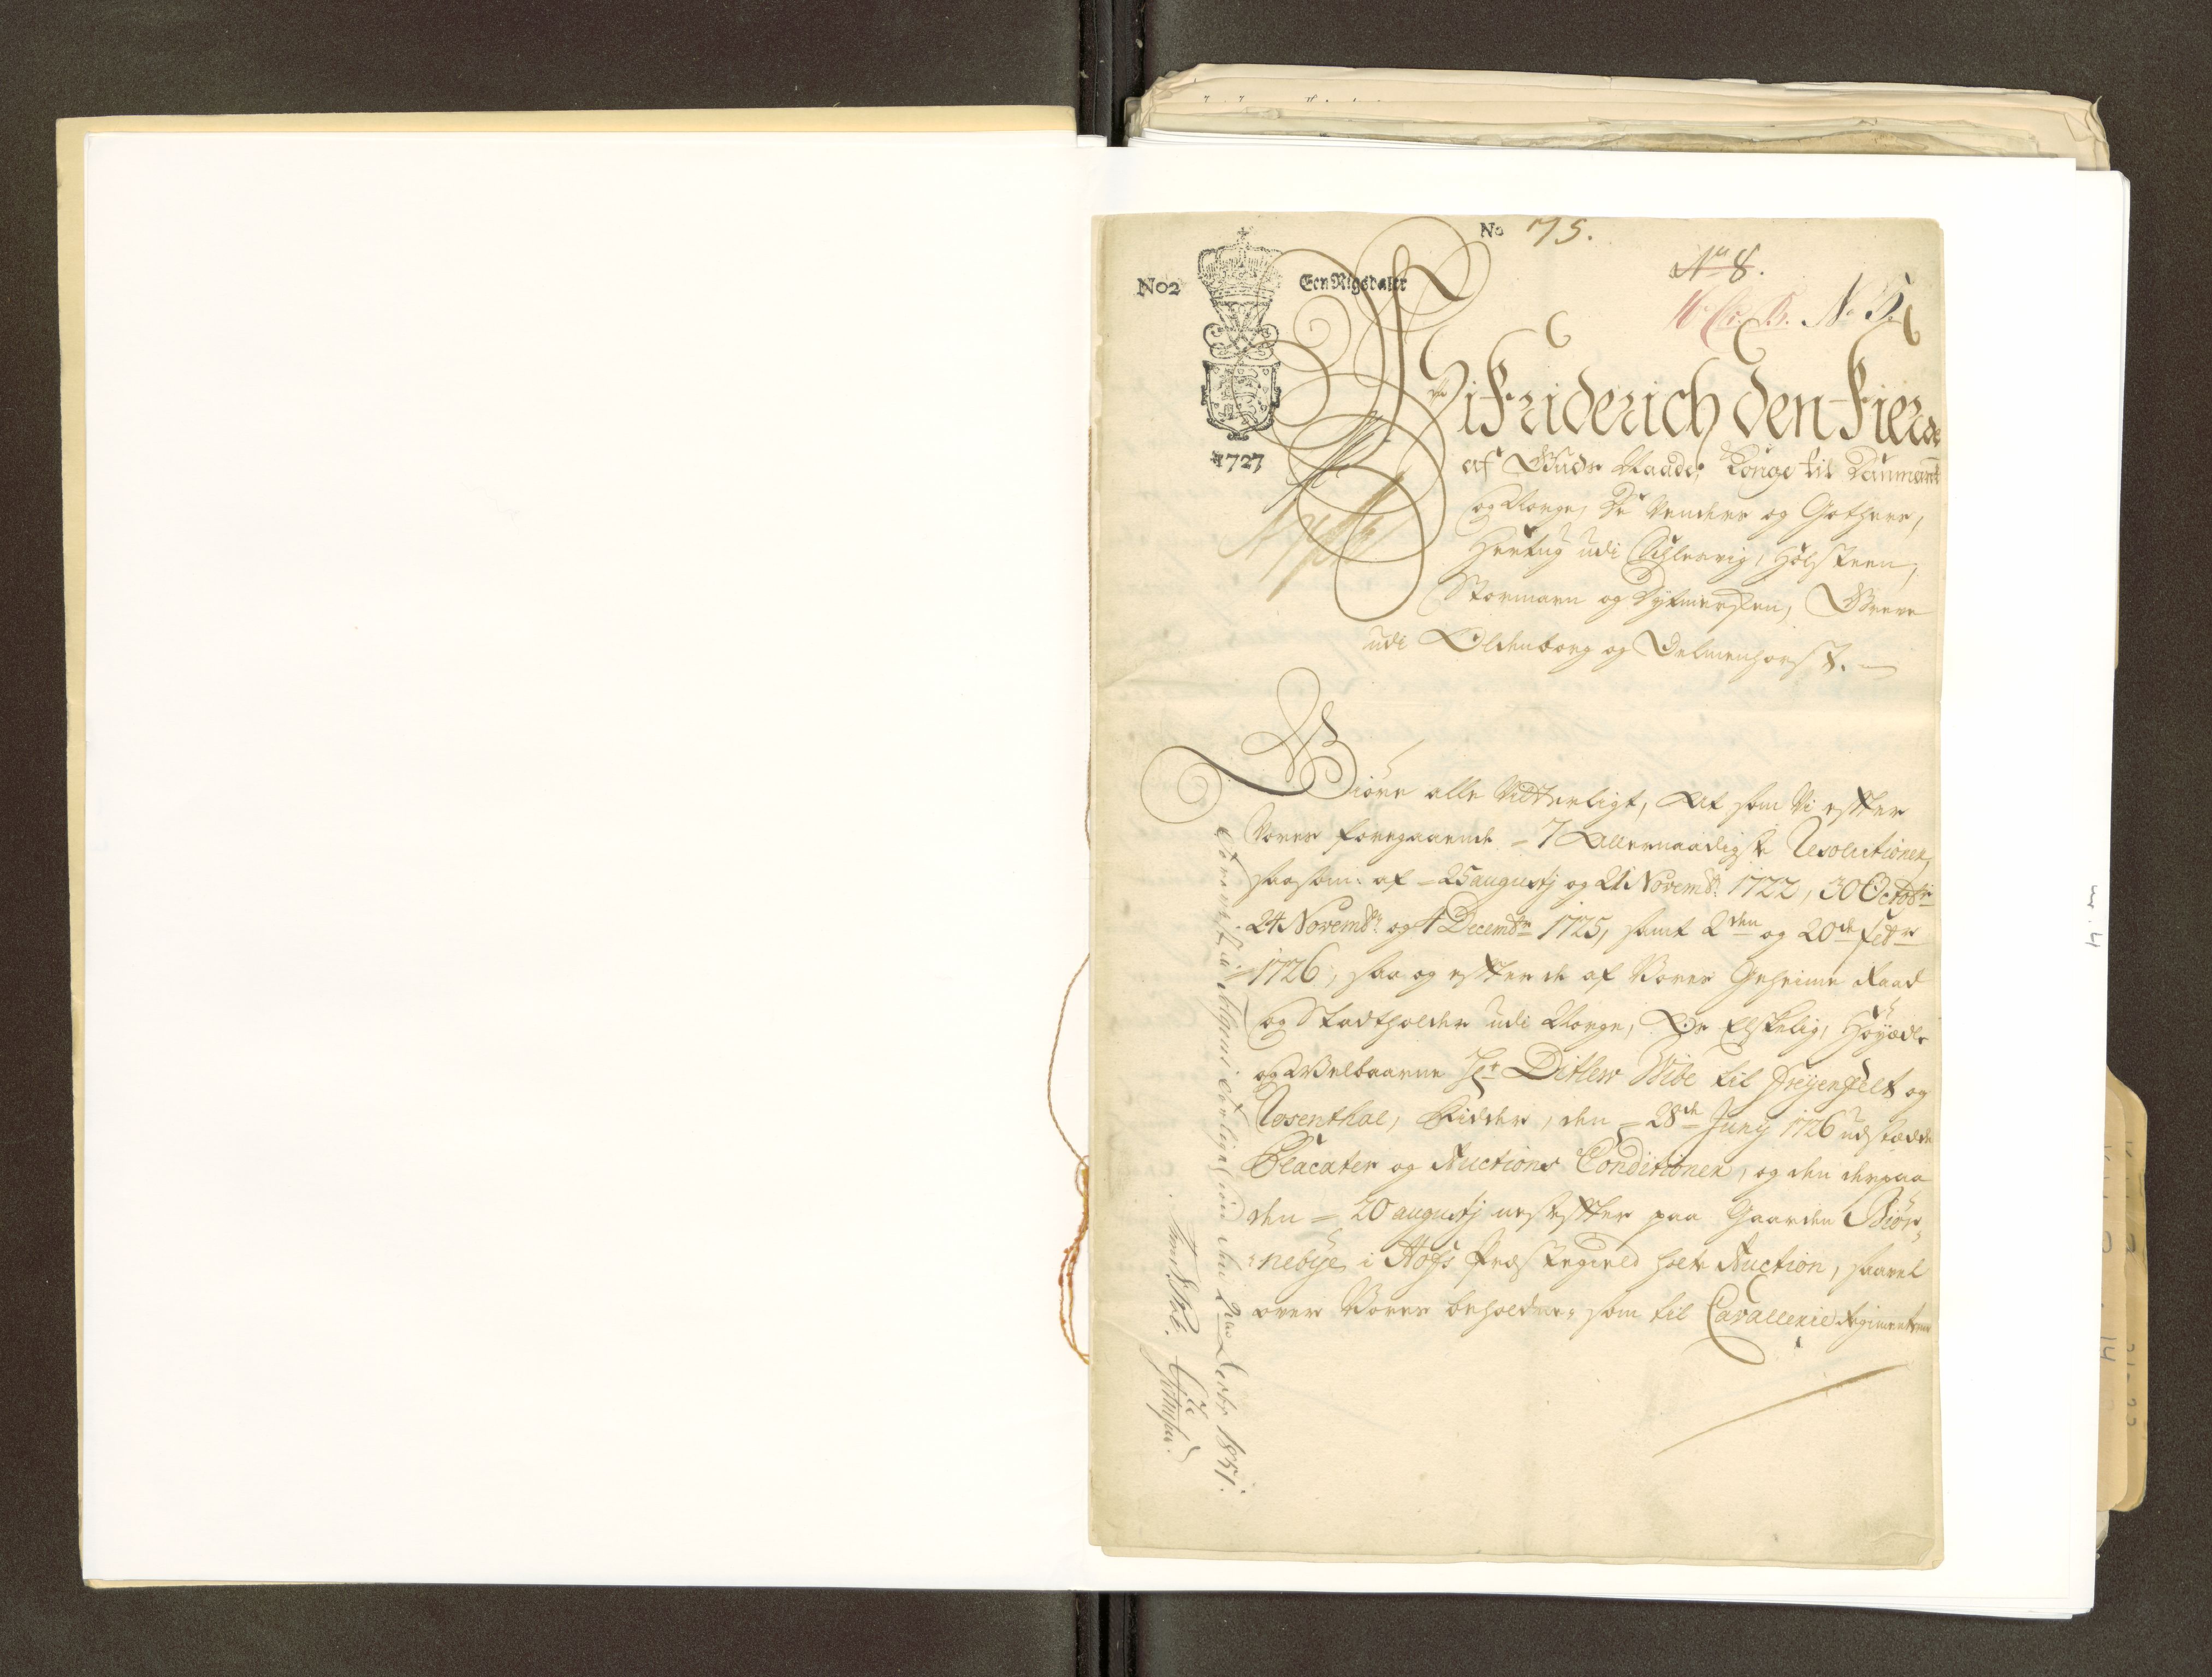 No 75.
No 8.
No2
Een Rigsdaler
1727
Vi Friderich den Fierde
af Guds Naade, Konge til Danmark
og Norge, de Venders og Gothers,
Hertug udi Schleswig, Holsteen,
Stormarn og Dytmersken, Greve
udi Oldenborg og Delmenhorst.
Giøre alle Vitterligt, At som Vi effter
Vores foregaaende 7 Allernaadigste Resolutioner,
saasom af 25 augustj og 21 Novembr 1722, 30 Octobr
24 Novembr og 4 Decembr 1725, samt 2den og 20de Febr
1726, saa og effter de af Vores Geheime Raad
og Stadtholder udi Norge, Os Elskelig, Høyædle
og Velbaarne Hr Ditlew Wibe til Freyenfelt og
Rosenthal, Ridder, den 28de Junij 1726 udstædde
Placater og Auctions Conditioner, og den derpaa
den 20 augustj nestefter paa Gaarden Biør-
nebye i Hofs Præstegield holte Auction, saavel
over Vores beholdne, som til Cavallerie Regimenterne
Foreviist i den 2den Decbr 1851.